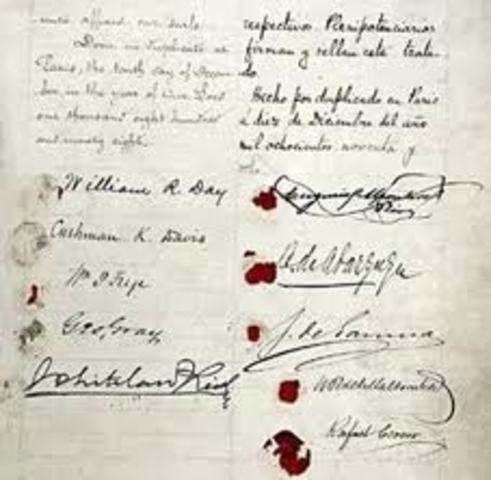 unto affixed our seals.
Done in duplicate at
Paris, the tenth day of Decem
ber, in the year of Our Lord
one thousand eight hundred
and ninety eight.
William R. Day
Cushman K. Davis
Wm P. Frye
Geo. Gray
Whitelaw Reid
respectivos Plenipotenciarios
firman y sellan este trata-
do.
Hecho por duplicado en Paris
á diez de Diciembre del año
mil ochocientos noventa y
B. de Abarzuza
J. de Garnica
Rafael Cerero